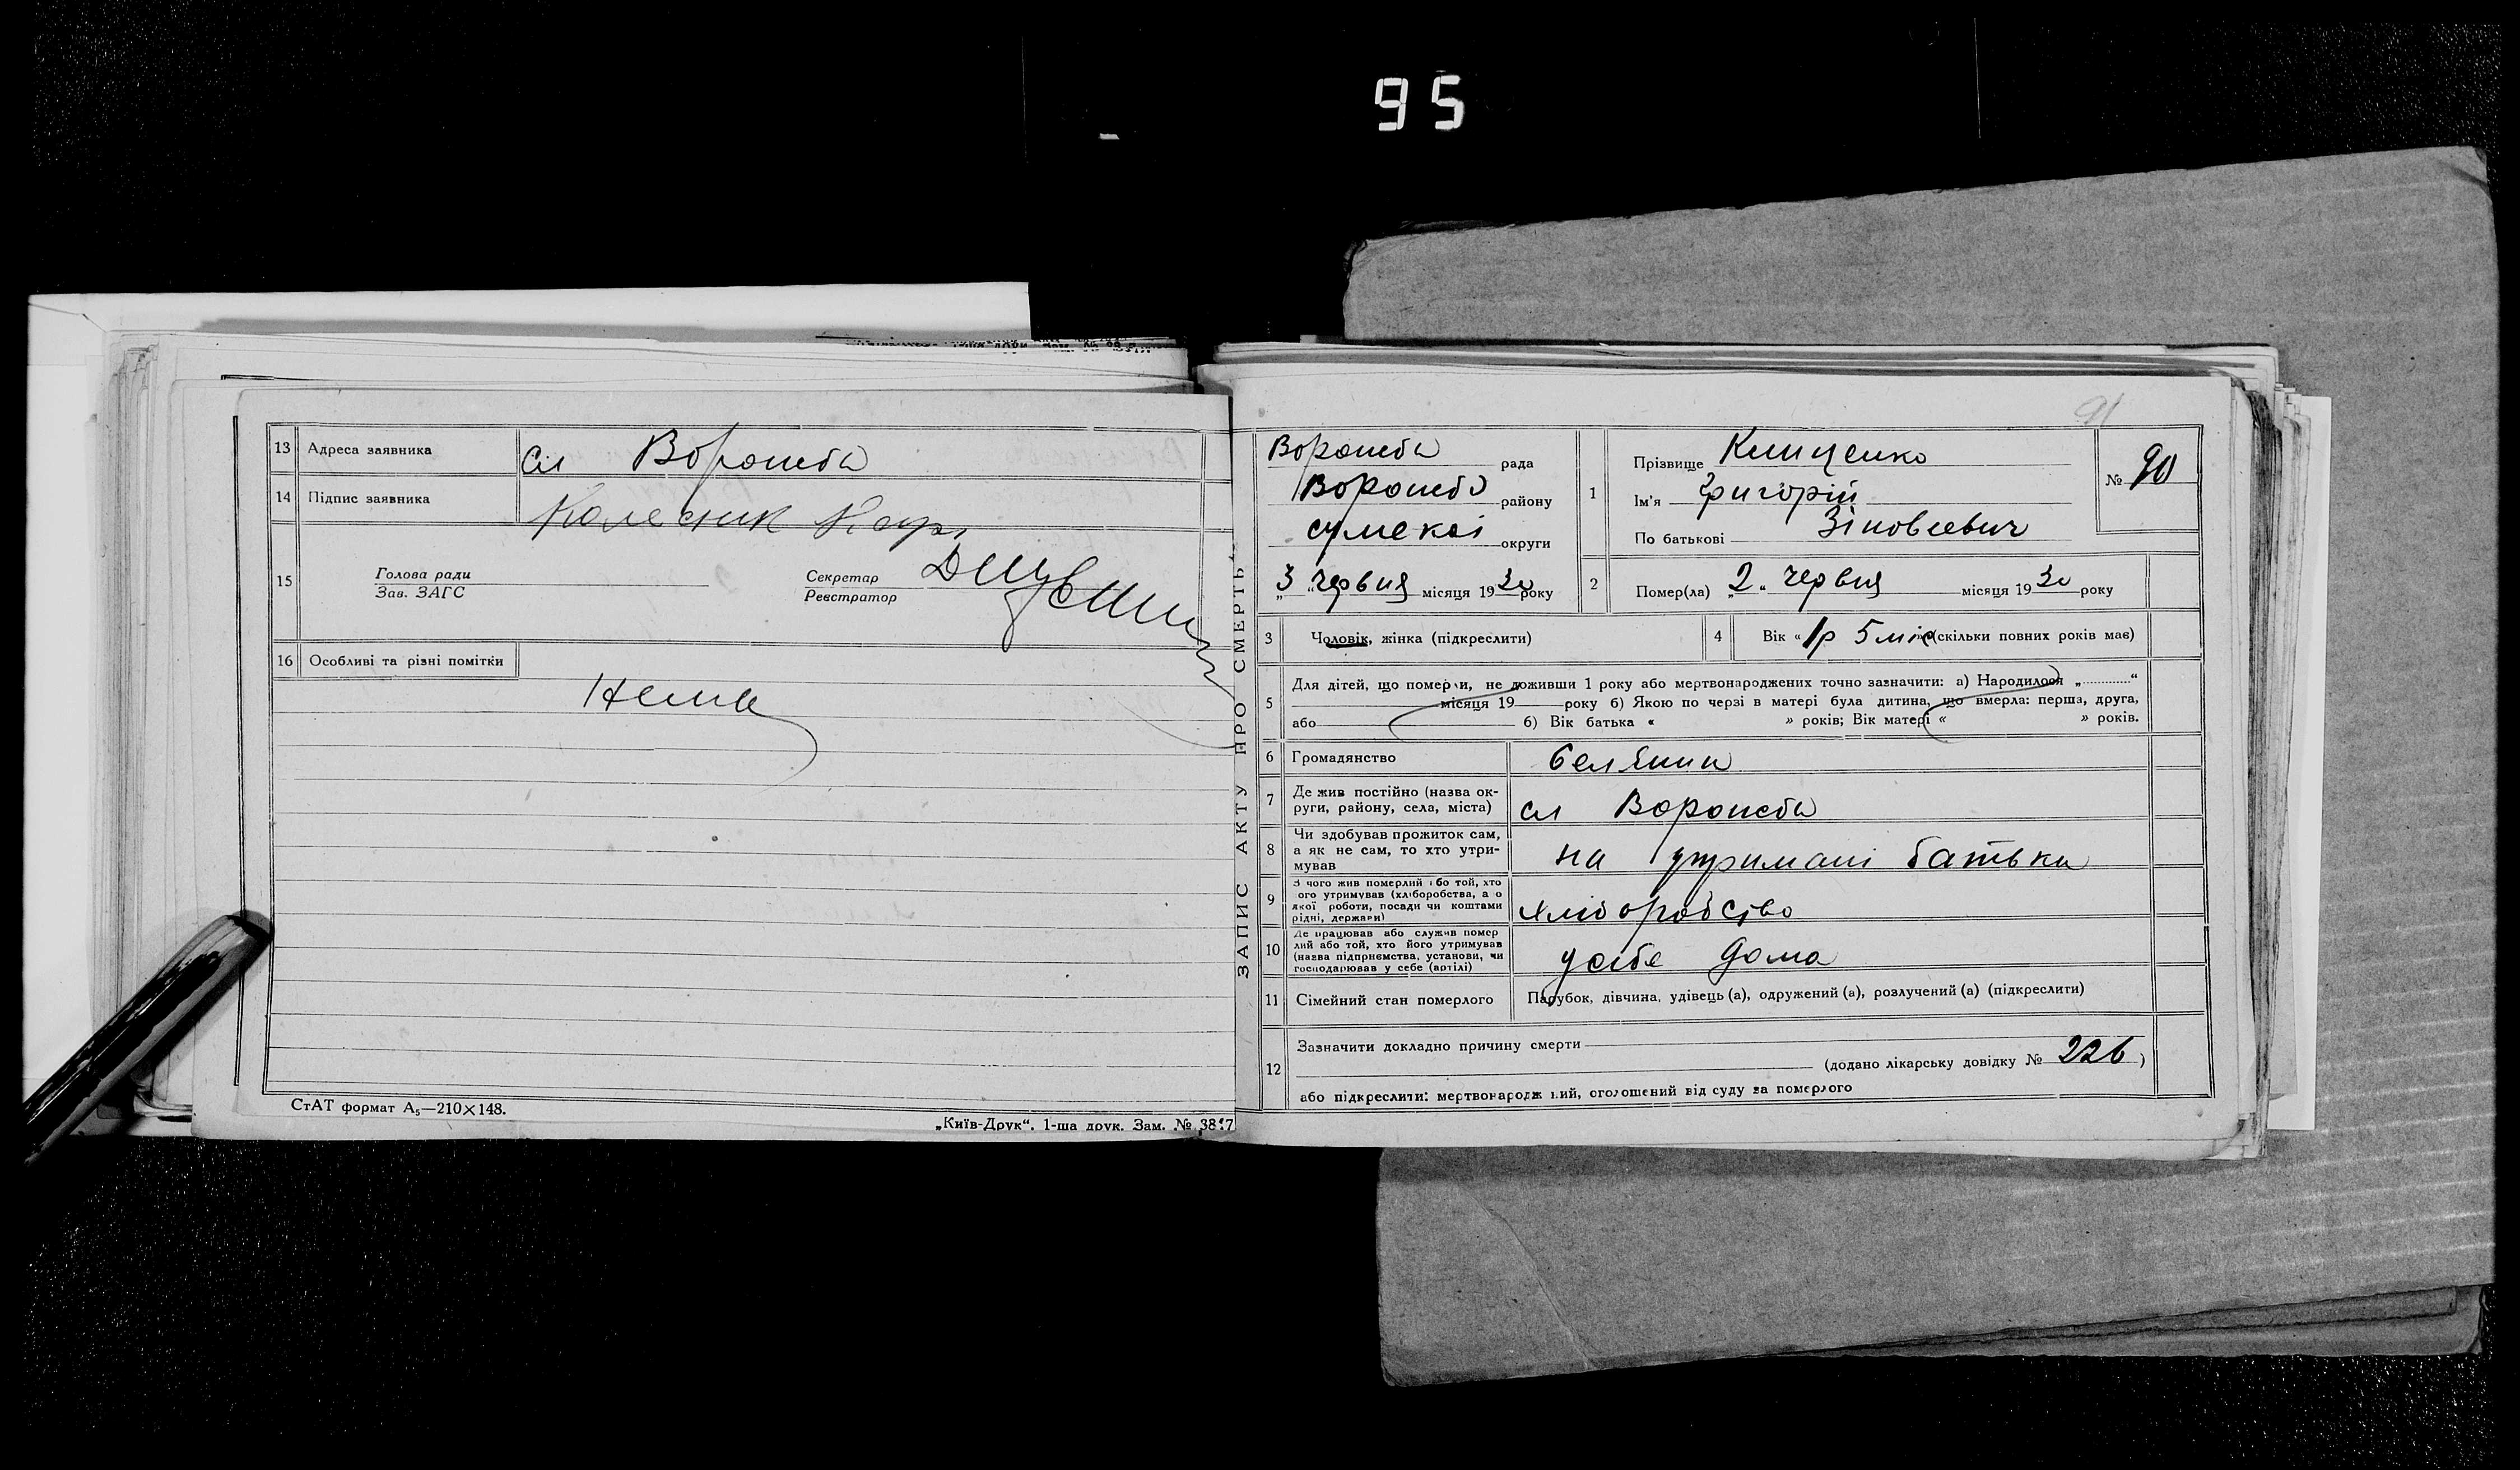 95
13 Адреса заявника сл Ворожба
14 Підпис заявника Колесник
15 Голова ради
Зав. ЗАГС
Секретар
Реєстратор
16 Особливі та різні помітки
Нема
СтАТ формат А₅—210×148.
„Київ-Друк“. 1-ша друк. Зам. №
ЗАПИС АКТУ ПРО СМЕРТЬ
91
Ворожба рада
Ворожб району
сумскої округи
„3“ червня місяця 1930 року
1 Прізвище Клищенко
Ім'я Григорій
По батькові Зіновієвич
№ 90
2 Помер(ла) „2“ червня місяця 1930 року
3 Чоловік, жінка (підкреслити)
4 Вік «1р 5 міс» (скільки повних років має)
5 Для дітей, що померли, не доживши 1 року або мертвонароджених точно зазначити: а) Народилося „............“
місяця 19 року б) Якою по черзі в матері була дитина, що вмерла: перша, друга,
або б) Вік батька « » років; Вік матері « » років.
6 Громадянство
7 Де жив постійно (назва ок-
руги, району, села, міста) сл Ворожба
8 Чи здобував прожиток сам,
а як не сам, то хто утри-
мував на утримані батька
9 З чого жив померлий або той, хто
ого утримував (хліборобства, а о
якої роботи, посади чи коштами
рідні, держави) хліборобство
10 Де працював або служив помер
лий або той, хто його утримував
(назва підприємства, установи, чи
господарював у себе (артілі) усібе дома
11 Сімейний стан померлого Парубок, дівчина, удівець (а), одружений (а), розлучений (а) (підкреслити)
12 Зазначити докладно причину смерти
(додано лікарську довідку № 226)
або підкреслити: мертвонародж ний, оголошений від суду за померлого